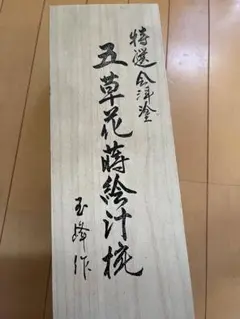 特選会津塗
五草花蒔絵汁椀
玉峰作